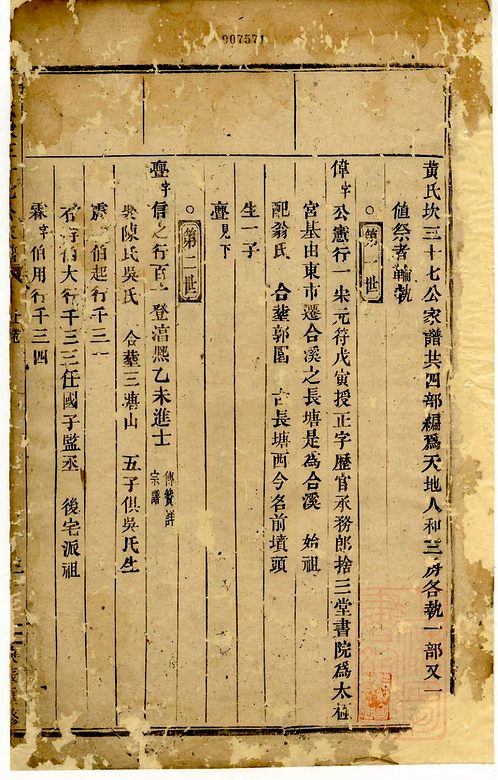 007571
黃氏坎三十七公家譜共四部編爲天地人和三房各執一部又一
值祭者輪執
。第一世
偉字公憲行一宋元符戊寅授正字歷官承務郎捨三堂書院爲太
宮基由東市遷合溪之長塘是為合溪 始祖
配翁氏 合葬郭園 古長塘西今名前墳頭
生一子
亹見下
。第二世
亹字信之行百 登淳熙乙未進士 傳贊詳宗譜
娶陳氏吳氏 合葬三塘山 五子俱吳氏生
震 伯起行千三
石字伯大行千三三任國子監丞 後宅派祖
霖字伯用行千三四